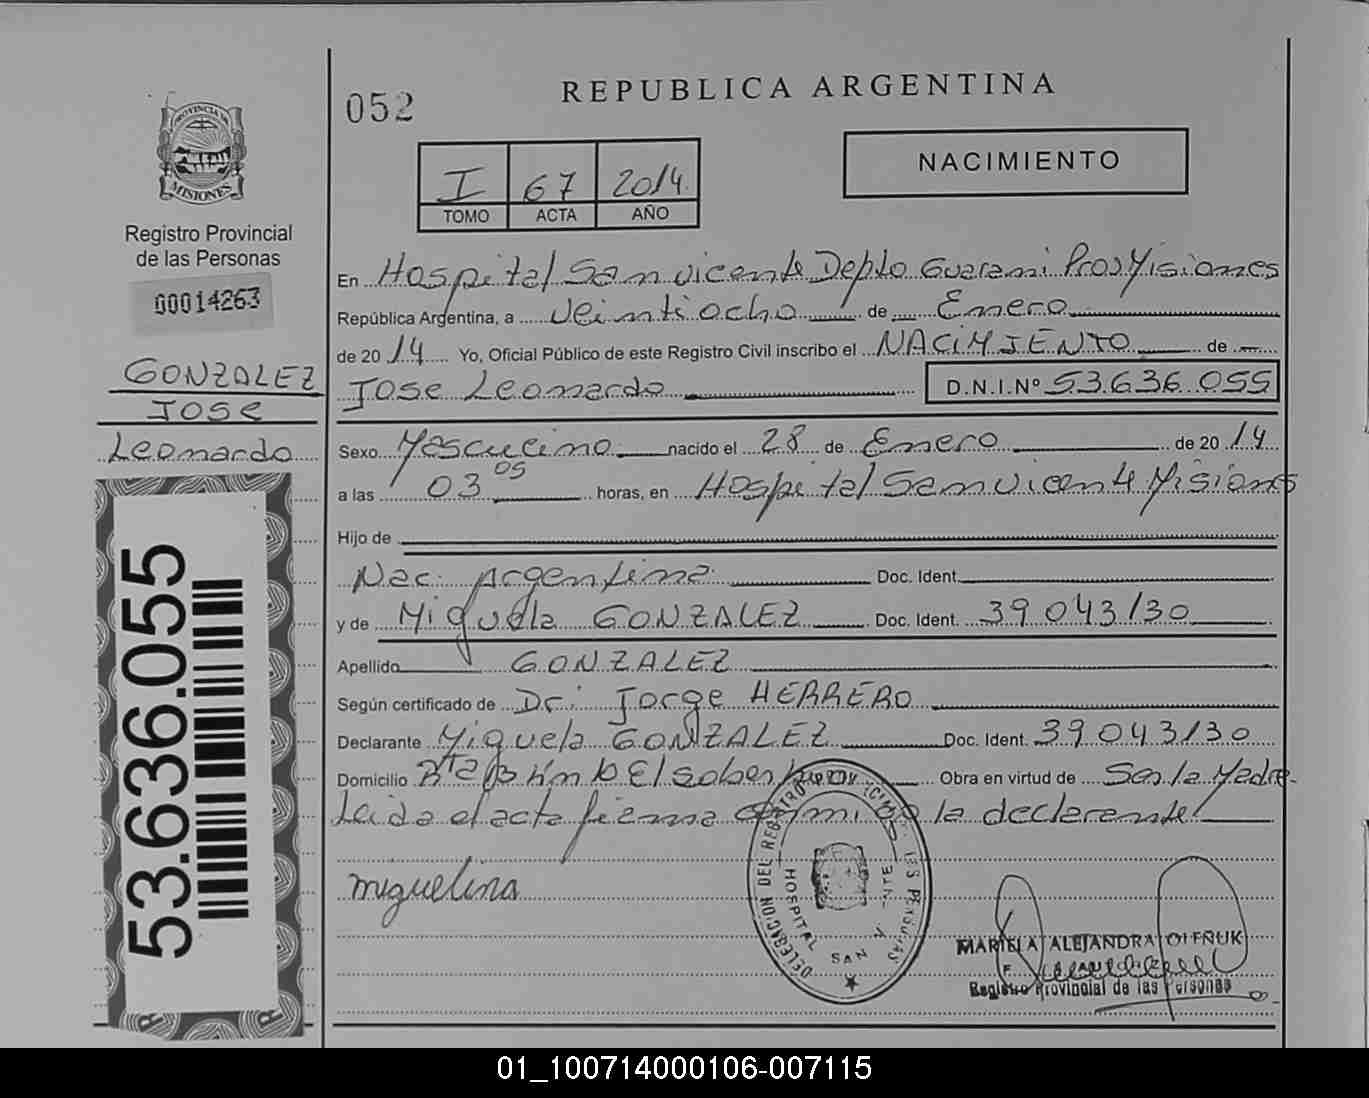 052
REPUBLICA ARGENTINA
PROVINCIA DE
MISIONES
Registro Provincial
de las Personas
00014263
I 67 2014
TOMO ACTA AÑO
NACIMIENTO
GONZALEZ
JOSE
Leonardo
53.636.055
En Hospital San vicente Depto Guarani Prov Misiones
República Argentina, a veintiocho de Enero
de 2014 Yo, Oficial Público de este Registro Civil inscribo el NACIMIENTO de
Jose Leonardo D.N.I.Nº 53.636.055
Sexo Masculino nacido el 28 de Enero de 2014
a las 03 05 horas, en Hospital San vicente Misiones
Hijo de
Nac: Argentina Doc. Ident.
y de Miguela GONZALEZ Doc. Ident. 39043130
Apellido GONZALEZ
Según certificado de Dr: Jorge HERRERO
Declarante Miguela GONZALEZ Doc. Ident. 39043130
Domicilio El soberbio Obra en virtud de Ser la Madre
Leida el acta firma conmigo la declarante
miguelina
DELEGACION DEL REGISTRO
HOSPITAL SAN
MARIELA ALEJANDRA OLEÑUK
Registro Provincial de las Personas
01_100714000106-007115